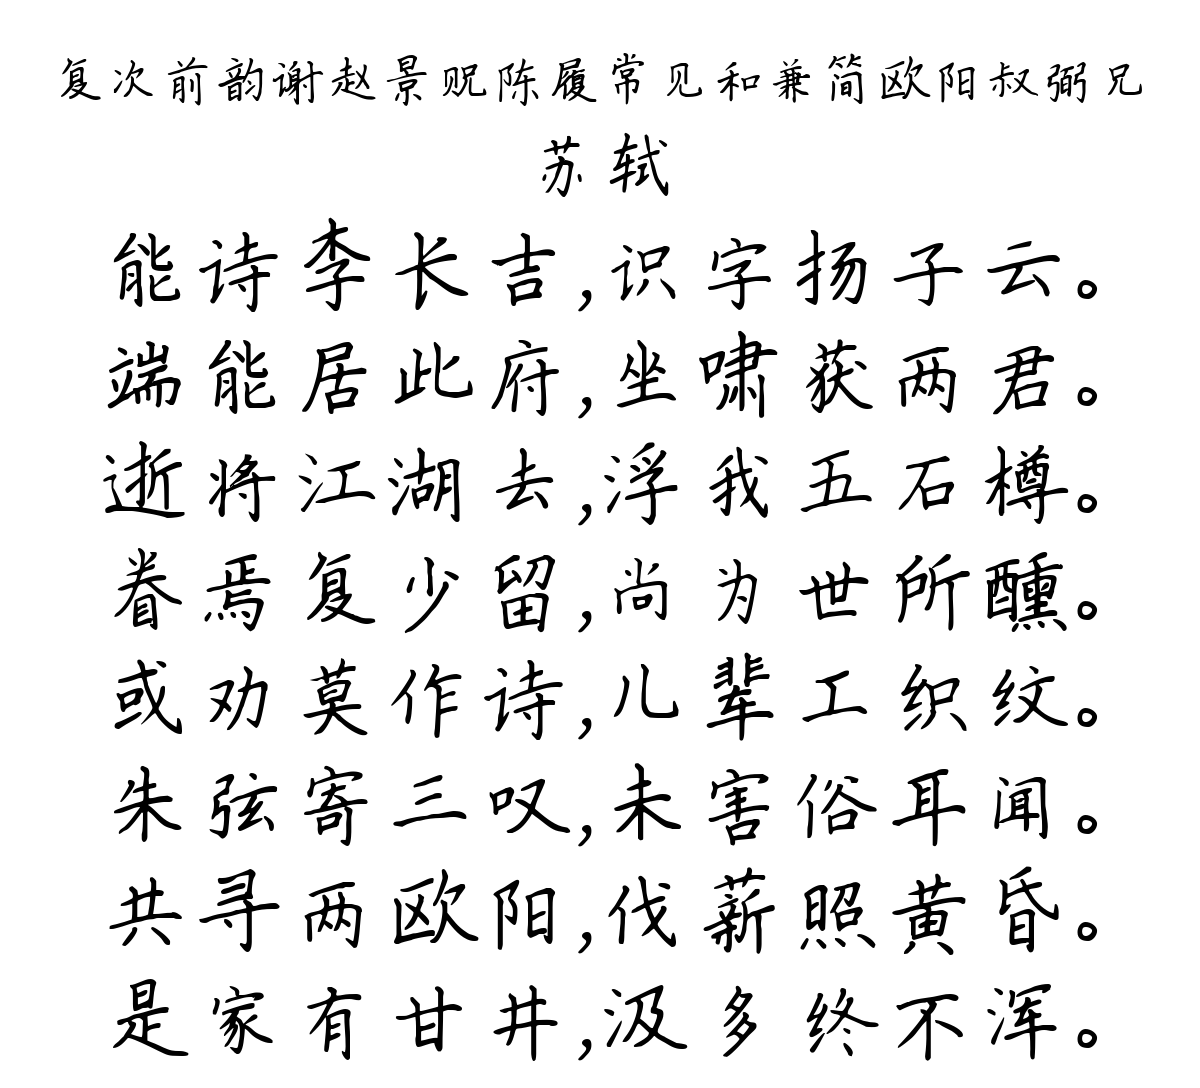 复次前韵谢赵景贶陈履常见和兼简欧阳叔弼兄
苏轼
能诗李长吉,识字扬子云。
端能居此府,坐啸获两君。
逝将江湖去,浮我五石樽。
眷焉复少留,尚为世所醺。
或劝莫作诗,儿辈工织纹。
朱弦寄三叹,未害俗耳闻。
共寻两欧阳,伐薪照黄昏。
是家有甘井,汲多终不浑。